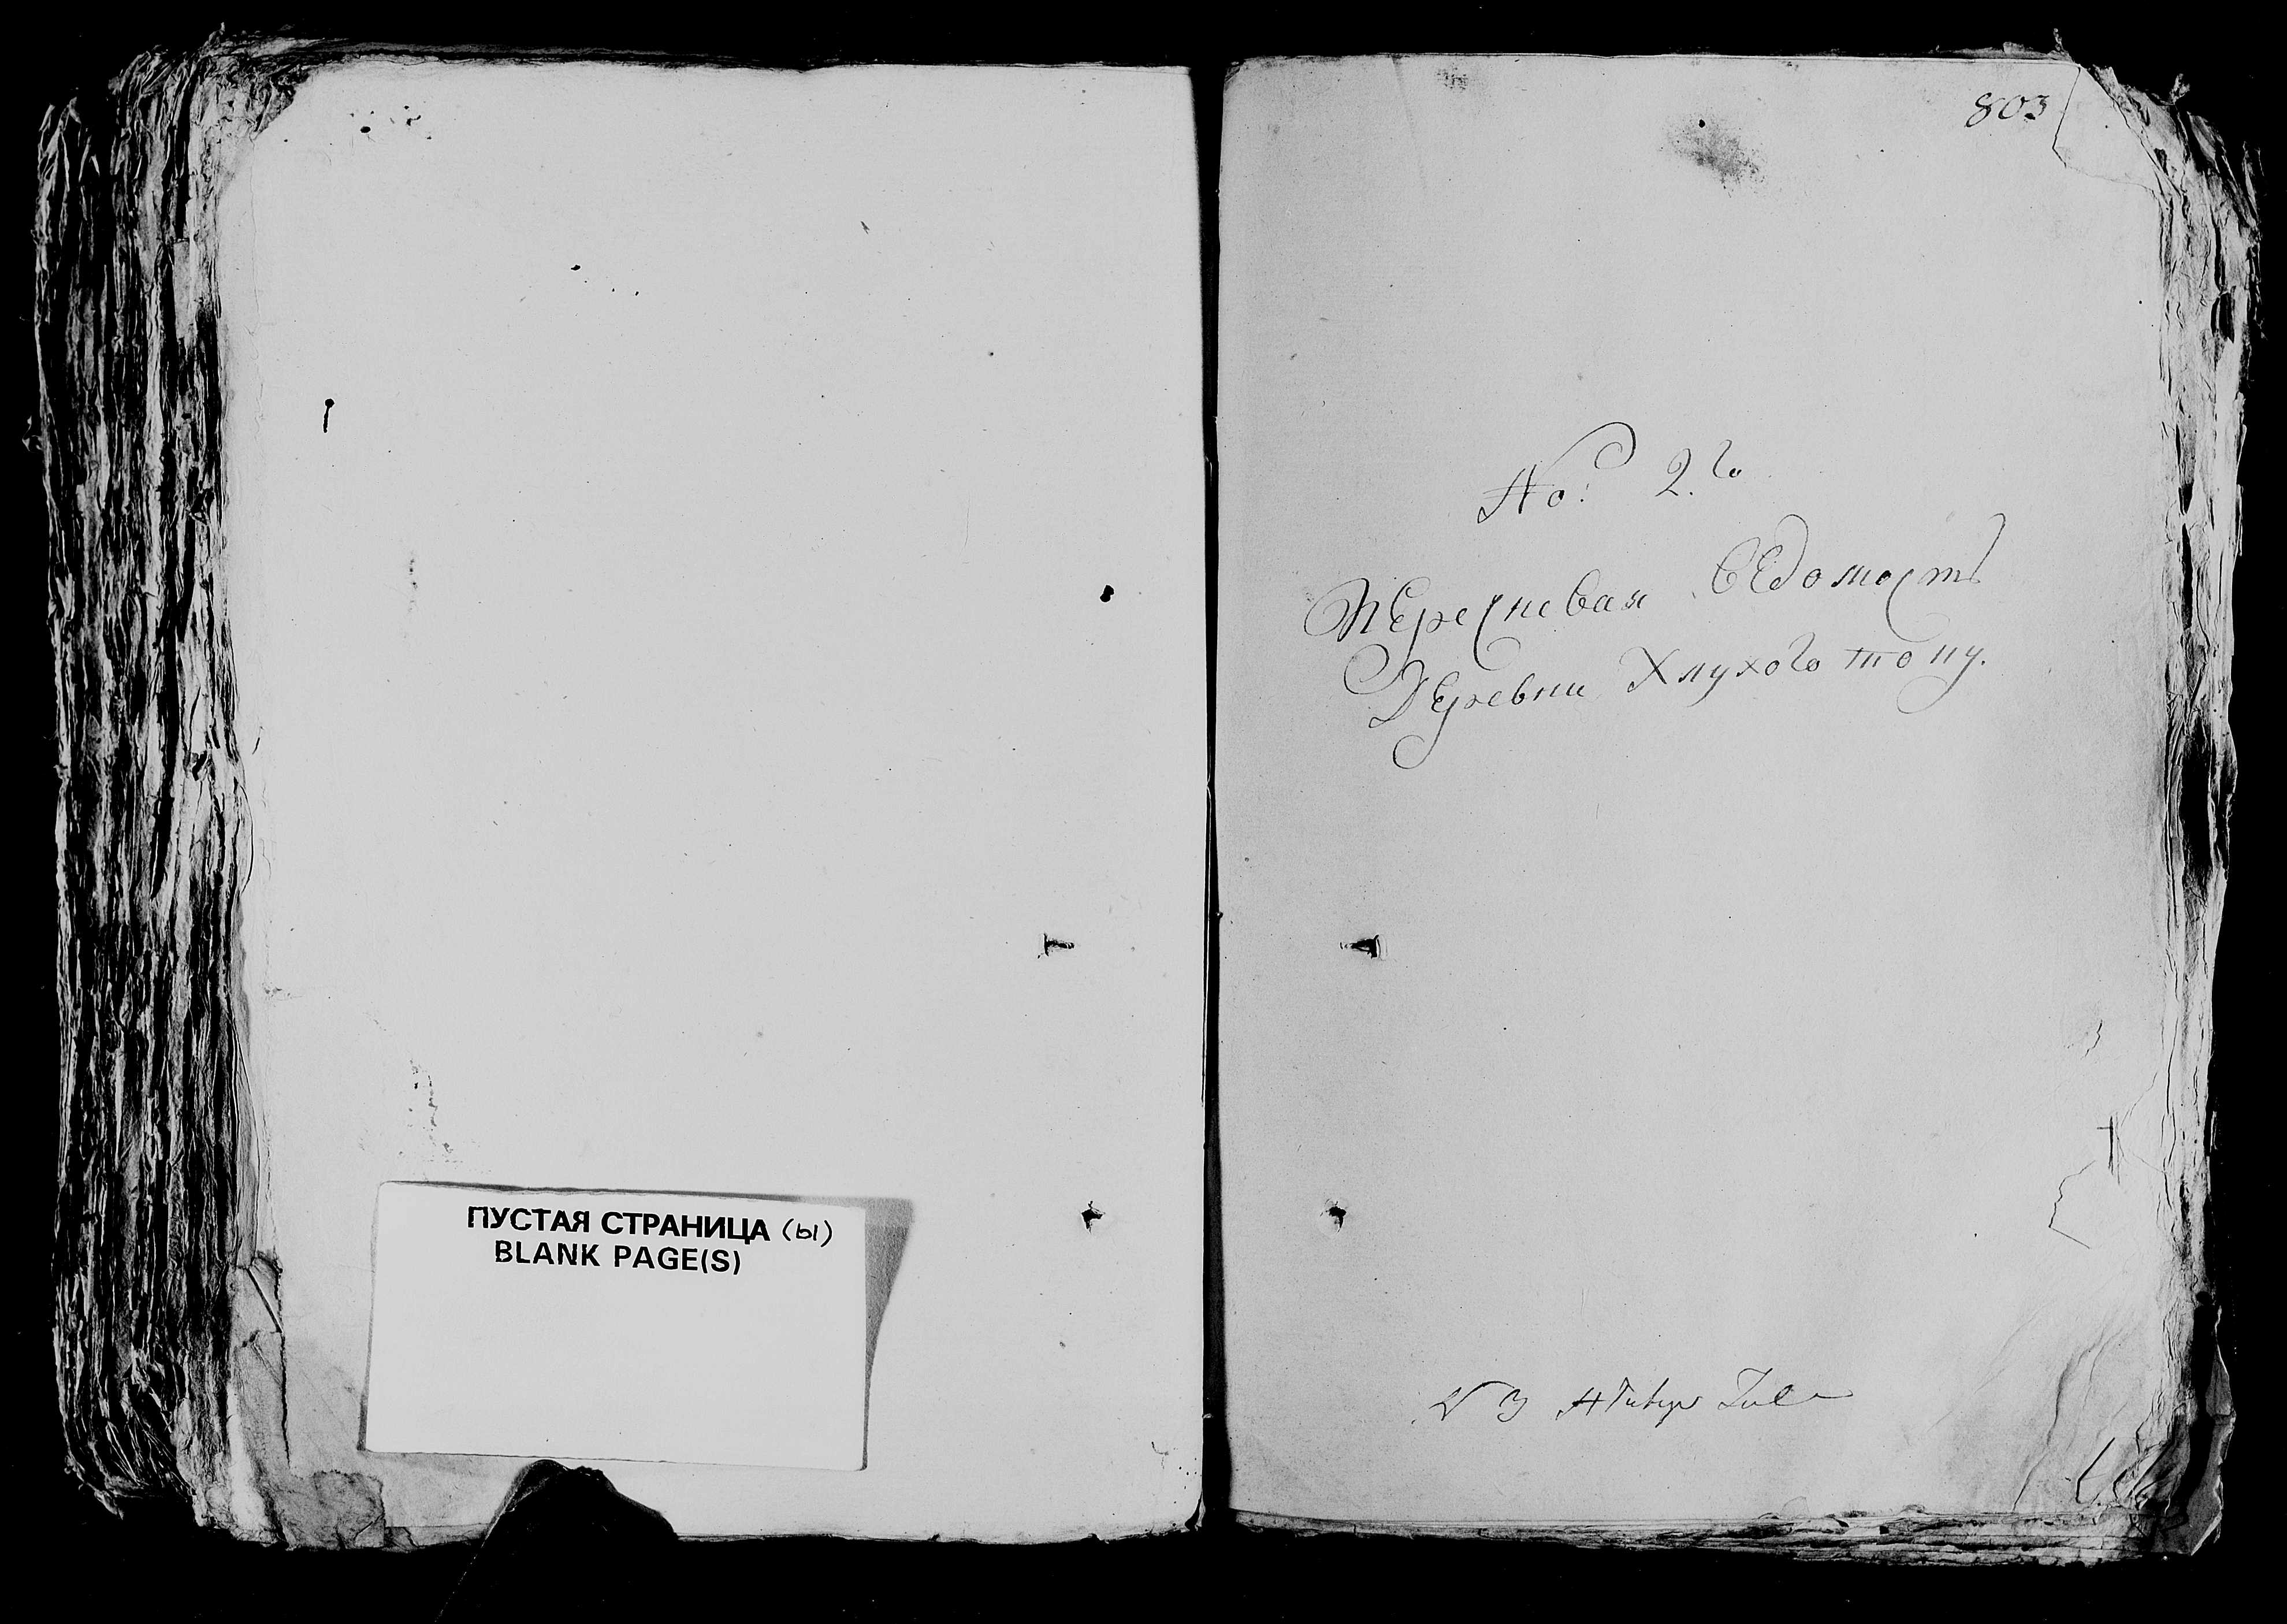 ПУСТАЯ СТРАНИЦА (Ы)
BLANK PAGE(S)
803
No: 2.го
Пересневая Ведомость
Деревни Хлухого топу.
N 3